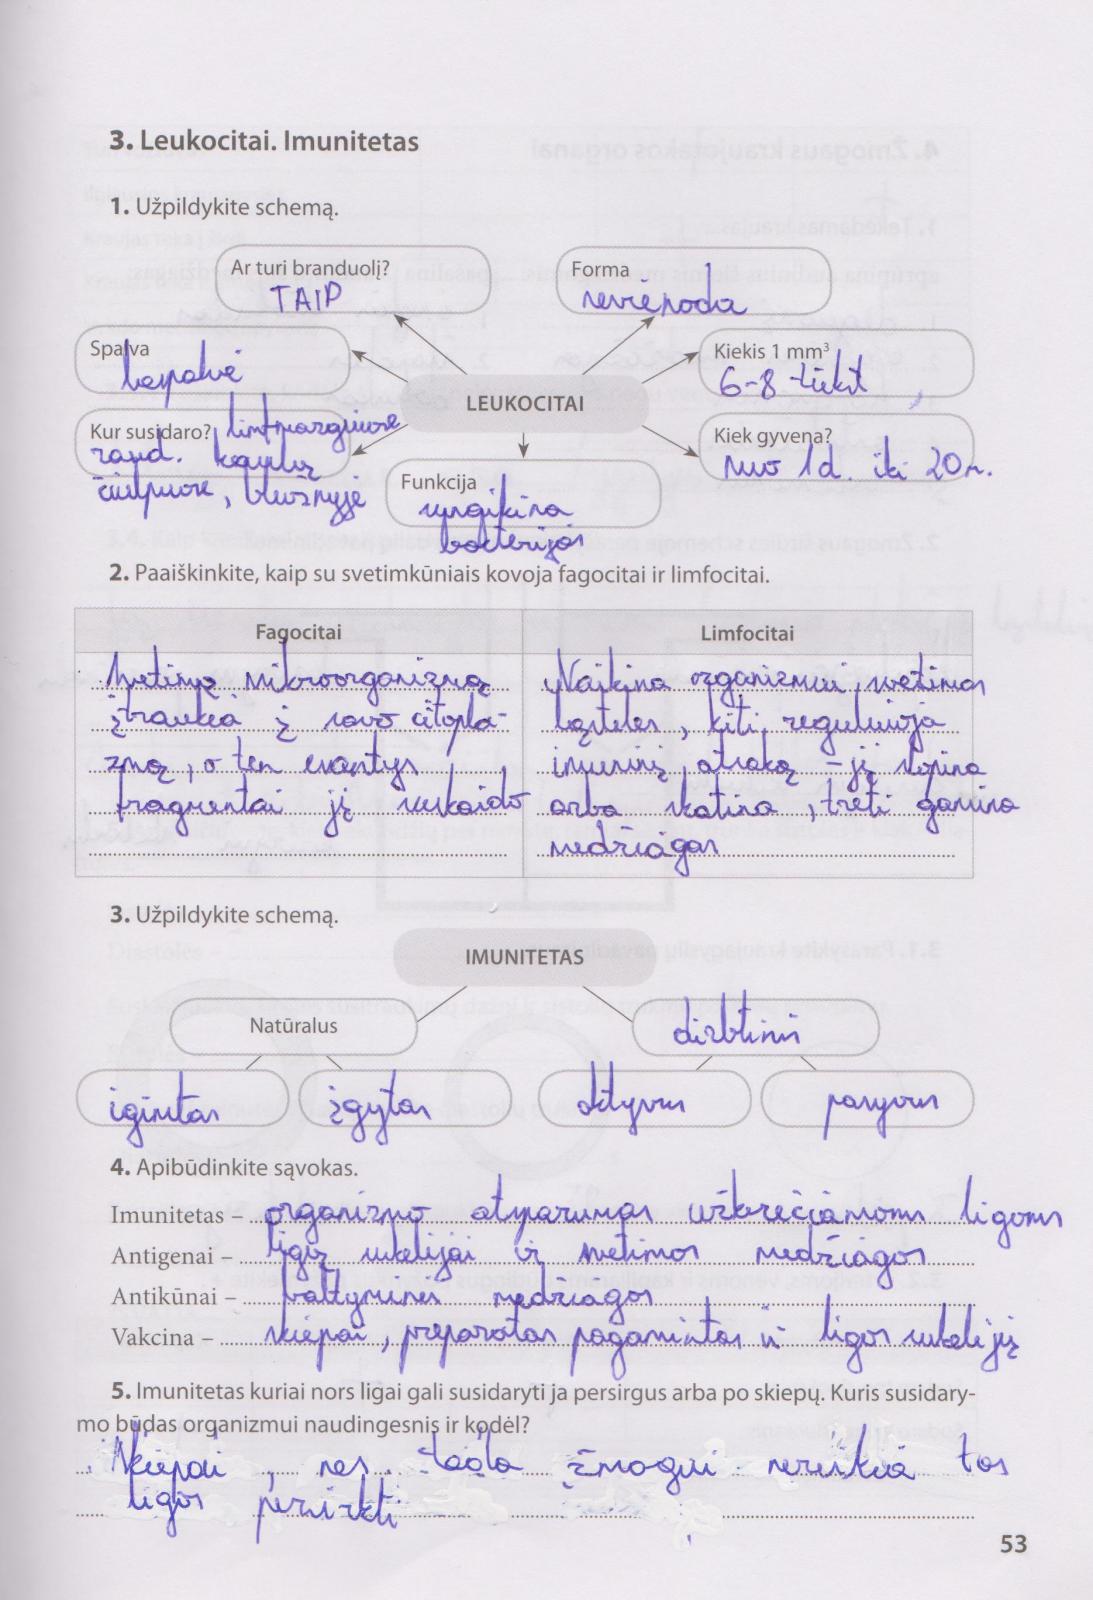 3. Leukocitai. Imunitetas
1. Užpildykite schemą.
Ar turi branduolį?
TAIP
Forma
nevienoda
Spalva
bespalvė
Kiekis 1 mm³
6-8 tūkst
LEUKOCITAI
Kur susidaro? limfmazgiuose
raud. kaulų
čiulpuose, blužnyje
Kiek gyvena?
nuo 1d. iki 20 m.
Funkcija
sunaikina
bakterijas
2. Paaiškinkite, kaip su svetimkūniais kovoja fagocitai ir limfocitai.
Fagocitai
Svetimą mikroorganizmą
įtraukia į savo citopla-
zmą, o ten esantys
fragmentai jį suskaido
Limfocitai
Naikina organizmui svetimas
ląsteles, kiti reguliuoja
imuninę ataką - ją slopina
arba skatina, treti gamina
medžiagas
3. Užpildykite schemą.
IMUNITETAS
Natūralus
dirbtinis
įgimtas
įgytas
aktyvus
pasyvus
4. Apibūdinkite sąvokas.
Imunitetas – organizmo atsparumas užkrečiamoms ligoms
Antigenai – ligų sukelėjai ir svetimos medžiagos
Antikūnai – baltyminės medžiagos
Vakcina – skiepai, preparatas pagamintas iš ligos sukelėjų
5. Imunitetas kuriai nors ligai gali susidaryti ja persirgus arba po skiepų. Kuris susidary-
mo būdas organizmui naudingesnis ir kodėl?
Skiepai, nes tada žmogui nereikia tos
ligos persirgti
53